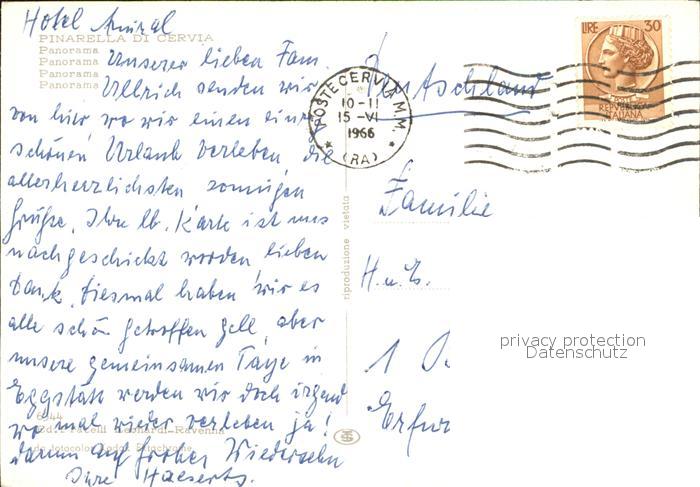 Hotel Amiral
PINARELLA DI CERVIA
Panorama
Panorama
Panorama
Panorama
Unserer lieben Fam.
Ullrich senden wir
von hier wo wir einen einen
schönen Urlaub verleben die
allerherzlichsten sonnigen
Grüße. Ihre lb. Karte ist uns
nachgeschickt worden lieben
Dank. Diesmal haben wir es
alle schön getroffen gell, aber
unsere gemeinsamen Tage in
Eggstätt werden wir doch irgend
wo mal wieder verleben ja!
darum auf frohes Wiedersehn
Ihre Haeserts.
Ediz. Fratelli Leonardi - Ravenna
riproduzione vietata
POSTE CERVIA M.M.
10-11
15-VI
1966
(RA)
LIRE 30
REPUBBLICA
ITALIANA
Deutschland
Familie
H. u.
1
Erfur
privacy protection
Datenschutz